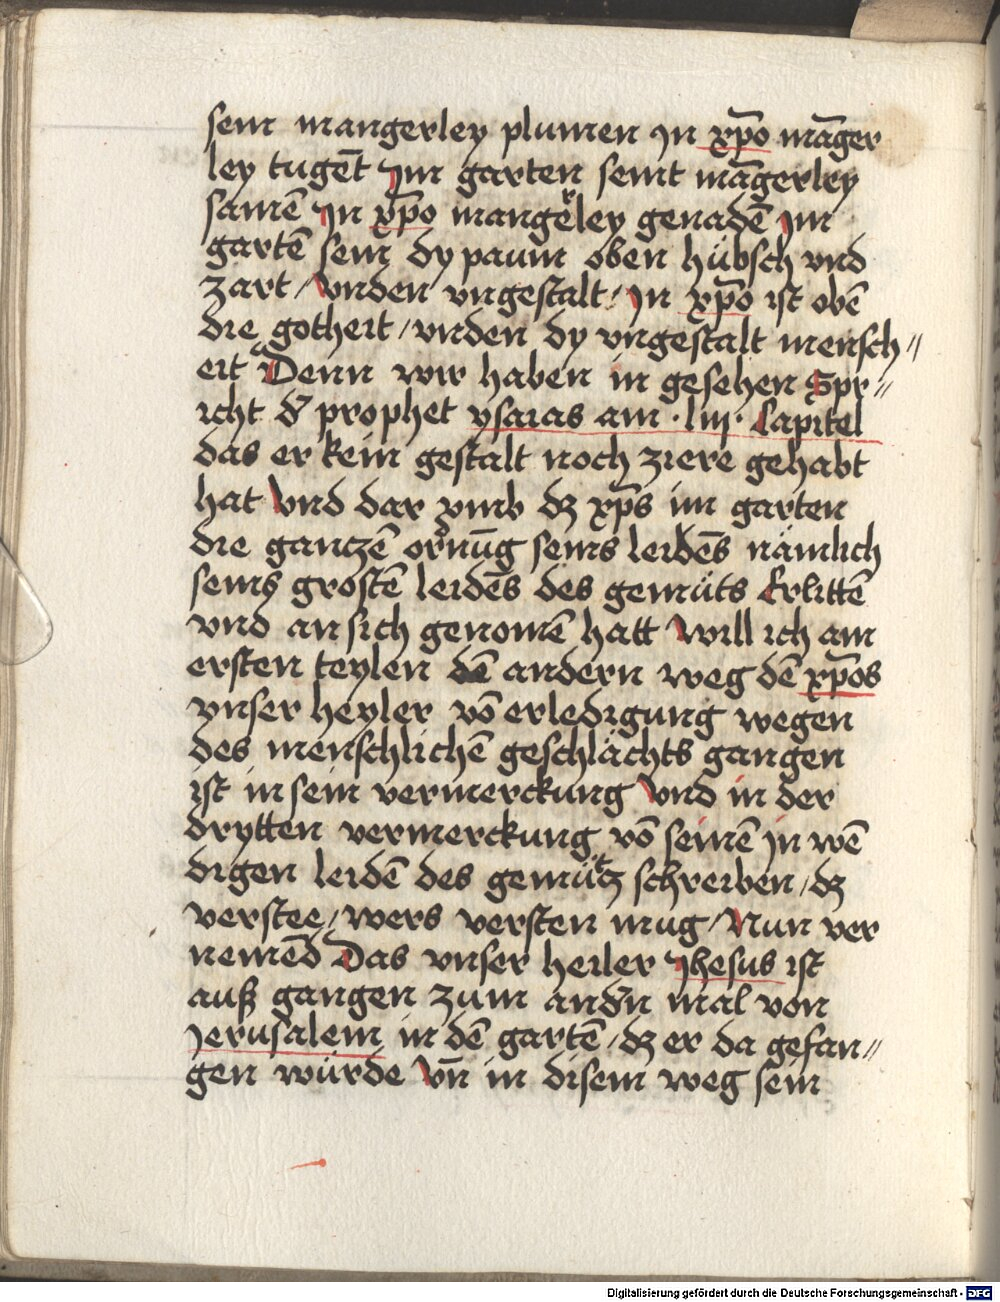 sein mangerley plumen Jn xp̄o mā̄ger
ley tugēt Jm garten seint māgerley
samē Jn xp̄o mangerley genadē Jm
gartē sein dy paum oben hübsch vnd
zart / Vnden vngestalt / Jn xp̄o ist obē
die gotheit / vnden dy vngestalt mensch〃
eit Denn wir haben in gesehen Spr〃
icht d̄ prophet ysaias am · liij · Capitel
das er kein gestalt noch ziere gehabt
hat Vnd dar vmb dz xp̄s im garten
die gantzē ornūg seins leidēs nämlich
seins grostē leidēs des gemüts Erlittē
vnd an sich genomē hatt Will ich am
ersten teylen dē andern weg dē xp̄os
vnser heyler vō erledigung wegen
des menschlichē geschlächts gangen
ist in sein vermerckung Vnd in der
drytten vermerckung vō seinē jn wē
digen leidē des gemütz schreiben / dz
verstee / wers versten mug / Nun ver
nemēd Das vnser heiler Jhesus ist
auß gangen zum andn̄ mal von
Jerusalem in dē gartē / dz er da gefan〃
gen würde Vn̄ in disem weg sein
Digitalisierung gefördert durch die Deutsche Forschungsgemeinschaft - DFG